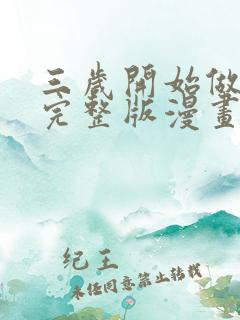 三歲開始做
完整版漫畫
纪王
未经同意禁止转载